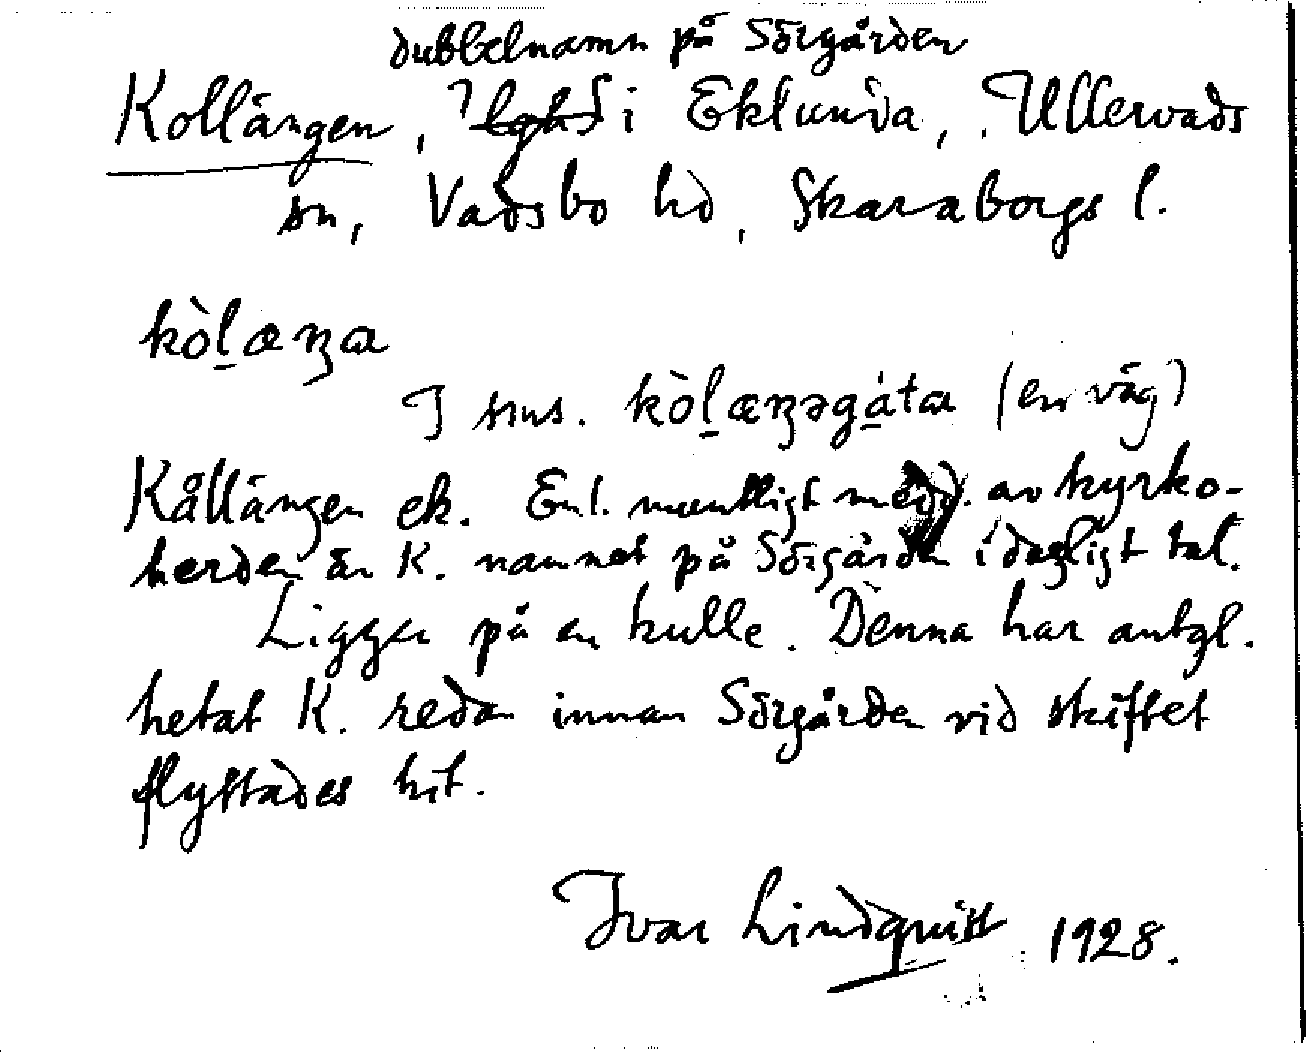 dubbelnamn på Sörgården
Kollängen, lgh i Eklunda, Ullervads
sn, Vadsbo hd, Skaraborgs l.
kòl̠æŋa
I sms. kòl̠æŋəgáta (en väg)
Kållängen ek. Enl. muntligt medd. av kyrko-
herden är K. namnet på Sörgården i dagligt tal.
Ligger på en kulle. Denna har antgl.
hetat K. redan innan Sörgården vid skiftet
flyttades hit.
Ivar Lindquist 1928.